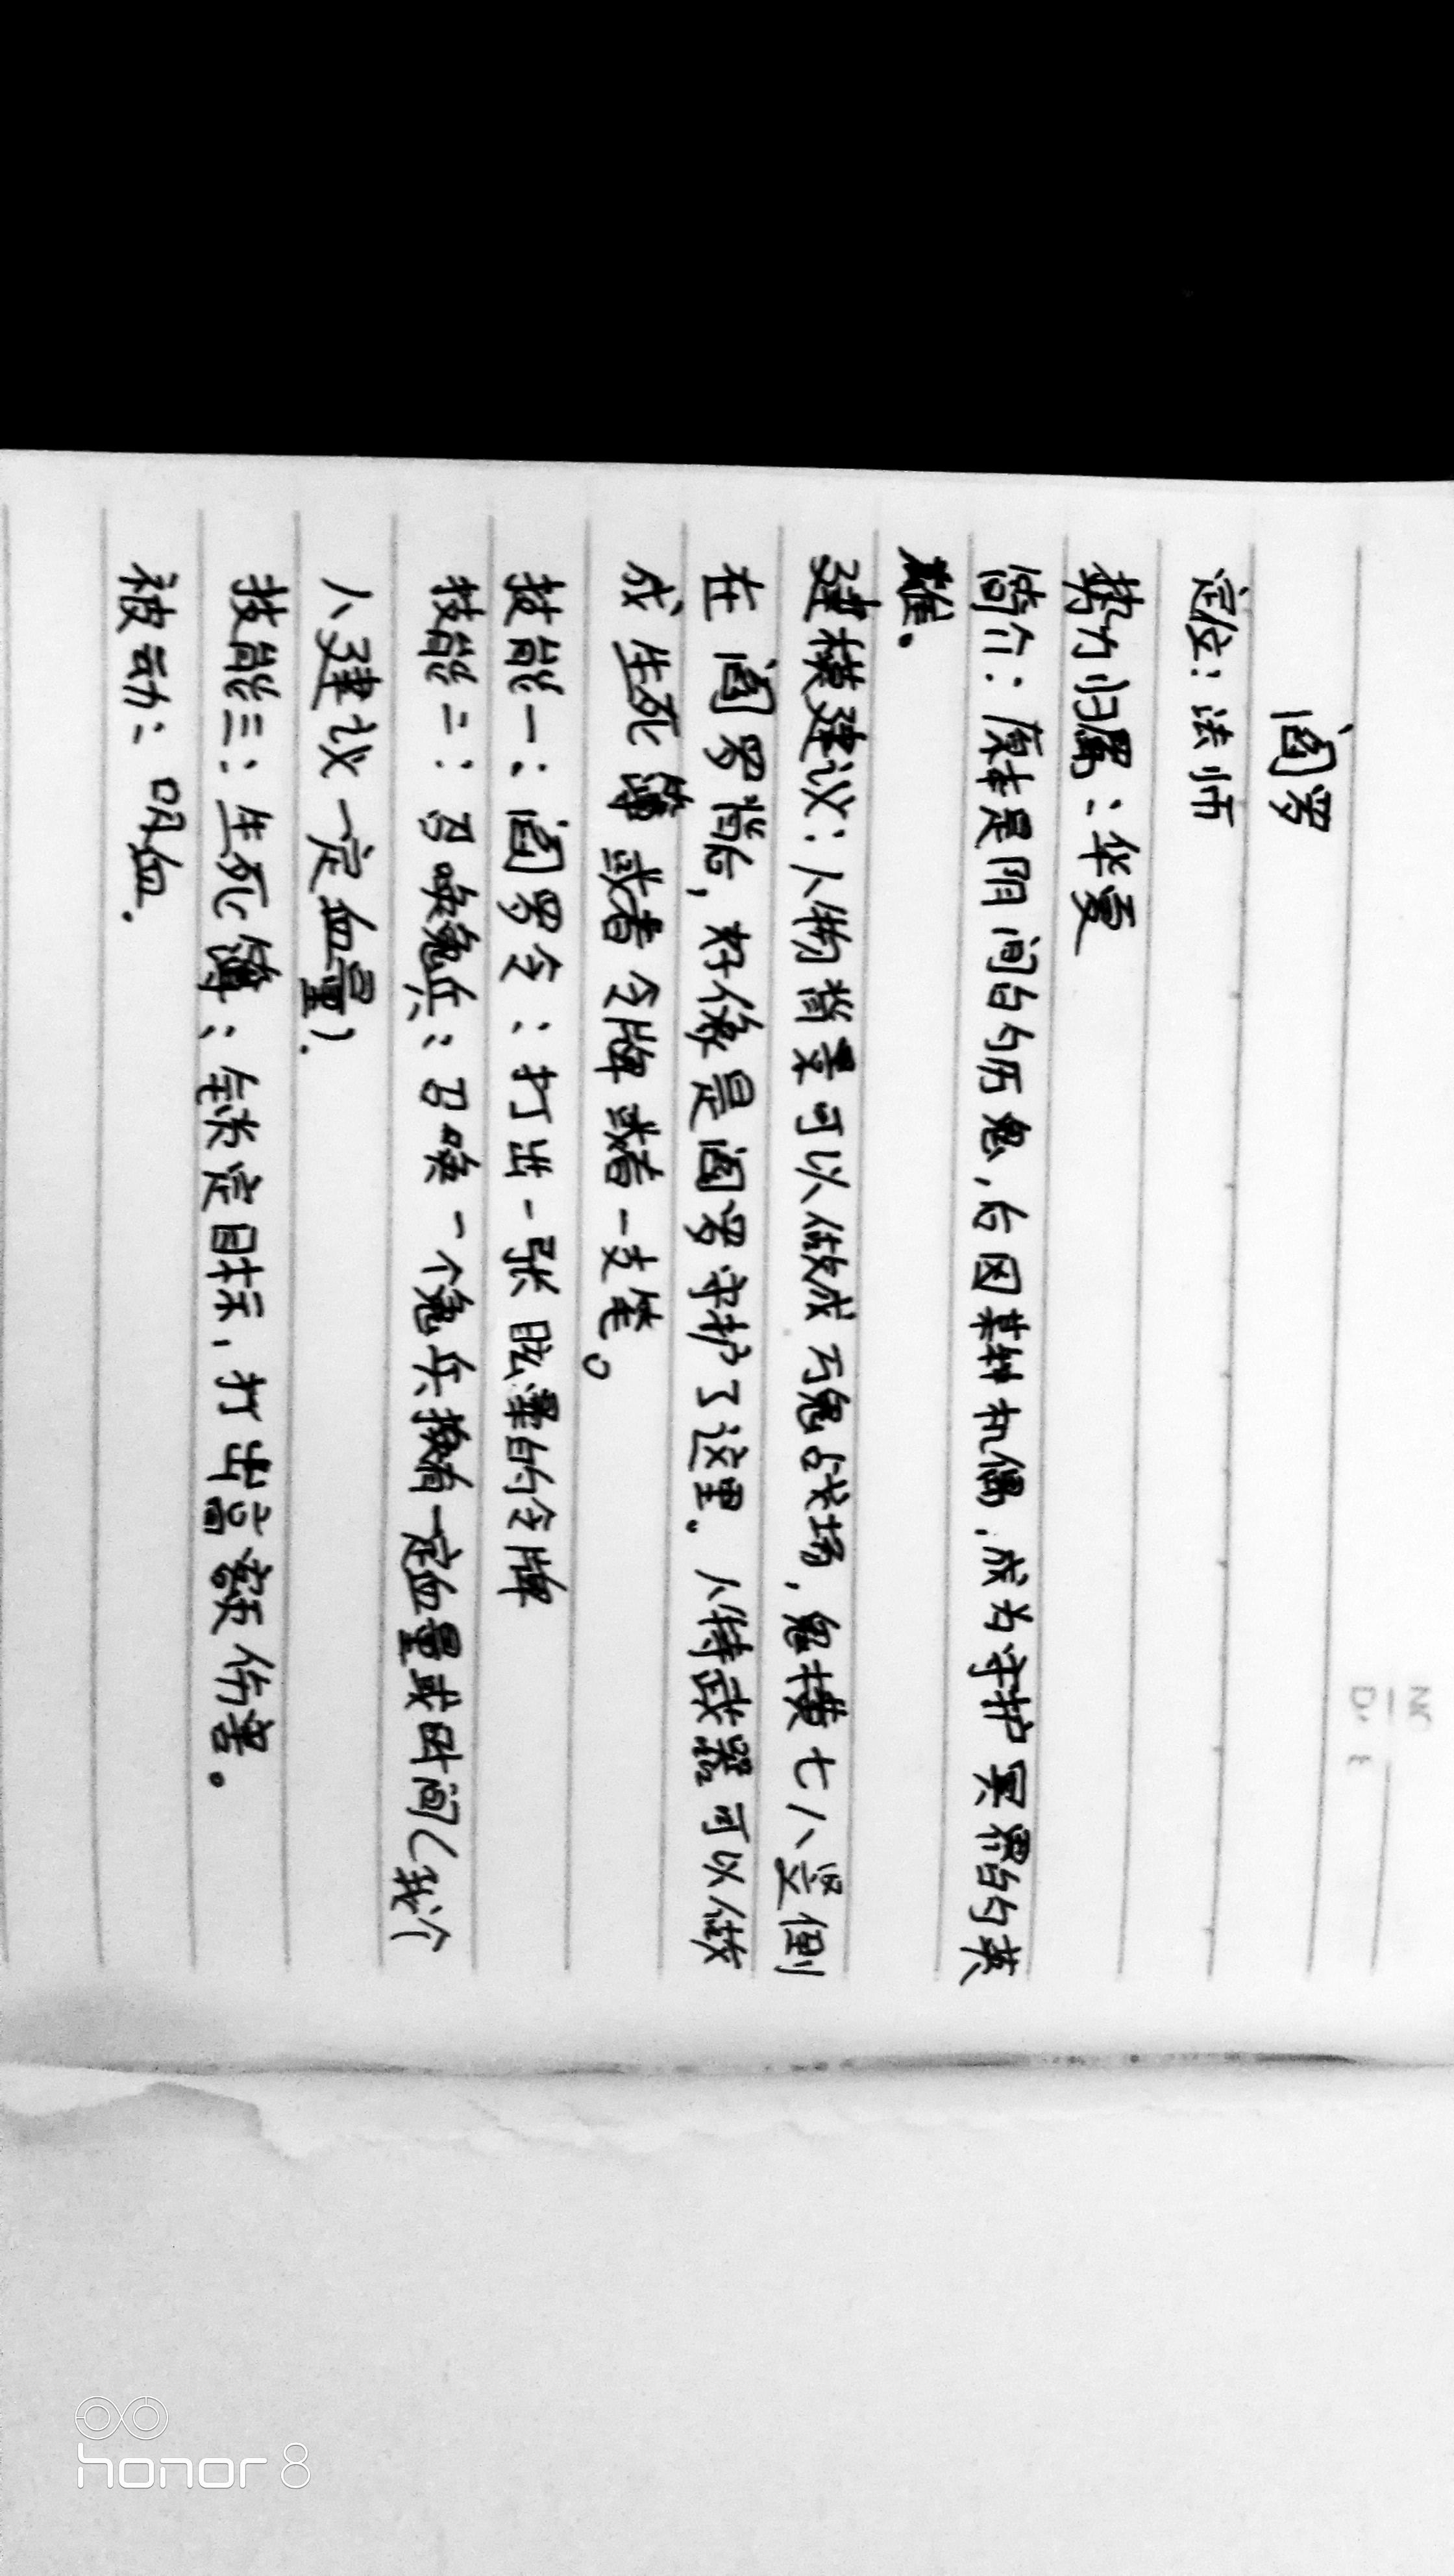 阎罗
定位：法师
势力归属：华夏
简介：原本是阴间的历鬼，后因某种机偶，成为守护冥界的英
雄。
建模建议：人物背景可以做成万鬼战场，鬼横七八竖倒
在阎罗背后，好像是阎罗守护了这里。人持武器可以做
成生死簿或者令牌或者一支笔。
技能一：阎罗令：打出一张眩晕的令牌
技能二：召唤鬼兵：召唤一个鬼兵拥有一定血量或时间（我个
人建议一定血量）.
技能三：生死簿：锁定目标，打出高额伤害。
被动：吸血.
honor 8